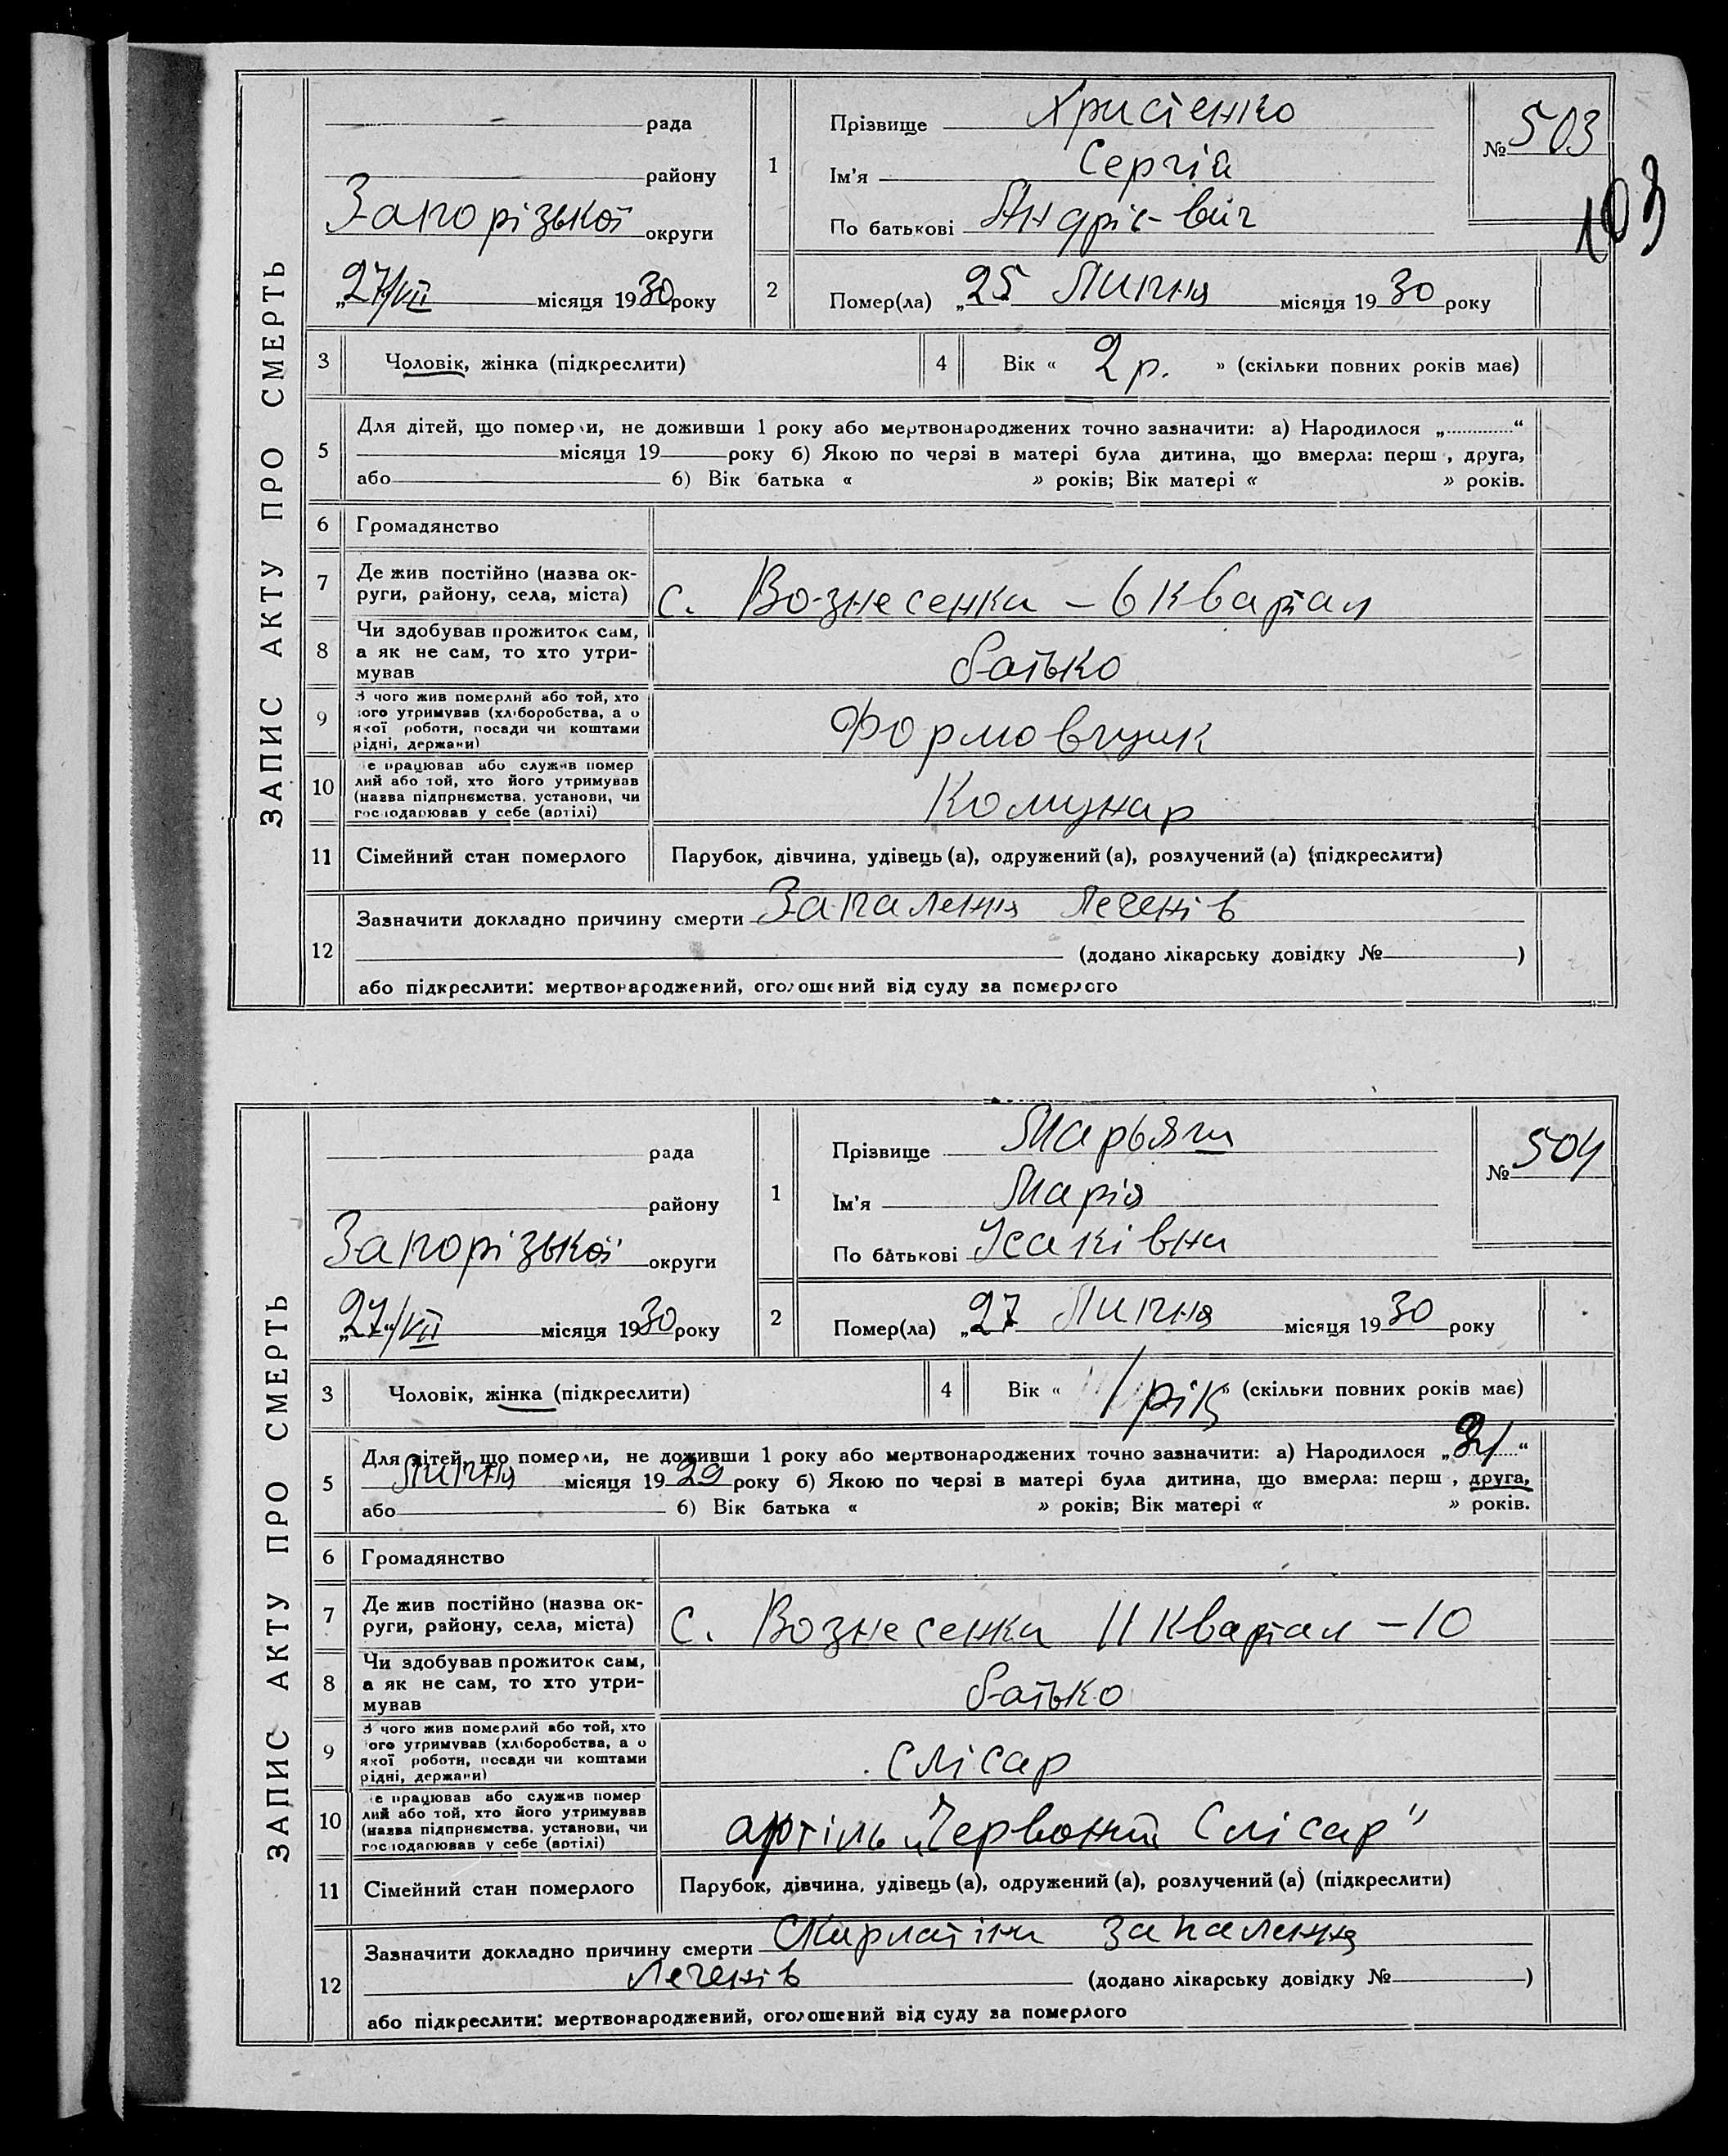 ЗАПИС АКТУ ПРО СМЕРТЬ
рада
району
Запорізької округи
„27/VII місяця 1930 року
1
Прізвище Христенко
Ім'я Сергій
По батькові Андрієвич
№ 503
103
2
Помер(ла) „25 Липня місяця 1930 року
3 Чоловік, жінка (підкреслити)
4 Вік « 2 р. » (скільки повних років має)
5 Для дітей, що померли, не доживши 1 року або мертвонароджених точно зазначити: а) Народилося „ “
місяця 19 року б) Якою по черзі в матері була дитина, що вмерла: перш , друга,
або б) Вік батька « » років; Вік матері « » років.
6 Громадянство
7 Де жив постійно (назва ок-
руги, району, села, міста) с. Вознесенка – 6 квартал
8 Чи здобував прожиток сам,
а як не сам, то хто утри-
мував батько
9 З чого жив померлий або той, хто
ого утримував (хліборобства, а о
якої роботи, посади чи коштами
рідні, держави) Формовщик
10 е працював або служив помер
лий або той, хто його утримував
(назва підприємства, установи, чи
господарював у себе (артілі) Комунар
11 Сімейний стан померлого Парубок, дівчина, удівець (а), одружений (а), розлучений (а) (підкреслити)
12 Зазначити докладно причину смерти Запалення легенів
(додано лікарську довідку № )
або підкреслити: мертвонароджений, оголошений від суду за померлого
ЗАПИС АКТУ ПРО СМЕРТЬ
рада
району
Запорізької округи
„27“/VII місяця 1930 року
1
Прізвище
Ім'я Марія
По батькові Ісаківна
№ 504
2
Помер(ла) „27 Липня місяця 1930 року
3 Чоловік, жінка (підкреслити)
4 Вік « 1 рік » (скільки повних років має)
5 Для дітей, що померли, не доживши 1 року або мертвонароджених точно зазначити: а) Народилося „ “
Липня місяця 1929 року б) Якою по черзі в матері була дитина, що вмерла: перш , друга,
або б) Вік батька « » років; Вік матері « » років.
6 Громадянство
7 Де жив постійно (назва ок-
руги, району, села, міста) с. Вознесенка 11 квартал – 10
8 Чи здобував прожиток сам,
а як не сам, то хто утри-
мував батько
9 З чого жив померлий або той, хто
ого утримував (хліборобства, а о
якої роботи, посади чи коштами
рідні, держави) слісар
10 е працював або служив помер
лий або той, хто його утримував
(назва підприємства, установи, чи
господарював у себе (артілі) артіль „Червоний Слісар”
11 Сімейний стан померлого Парубок, дівчина, удівець (а), одружений (а), розлучений (а) (підкреслити)
12 Зазначити докладно причину смерти Скирлатіна запалення
легенів (додано лікарську довідку № )
або підкреслити: мертвонароджений, оголошений від суду за померлого